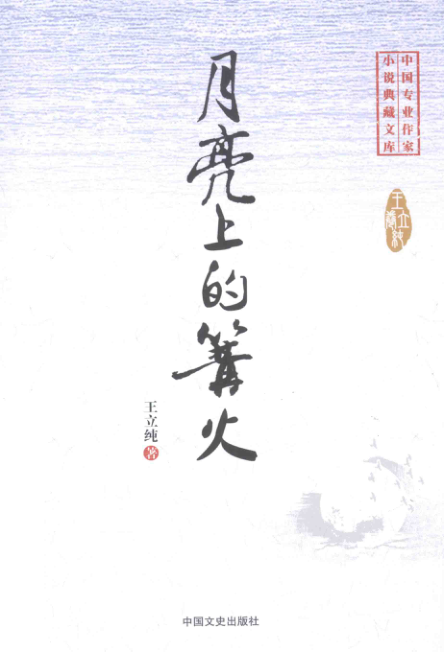 中国专业作家
小说典藏文库
王立纯卷
月亮上的篝火
王立纯 著
中国文史出版社